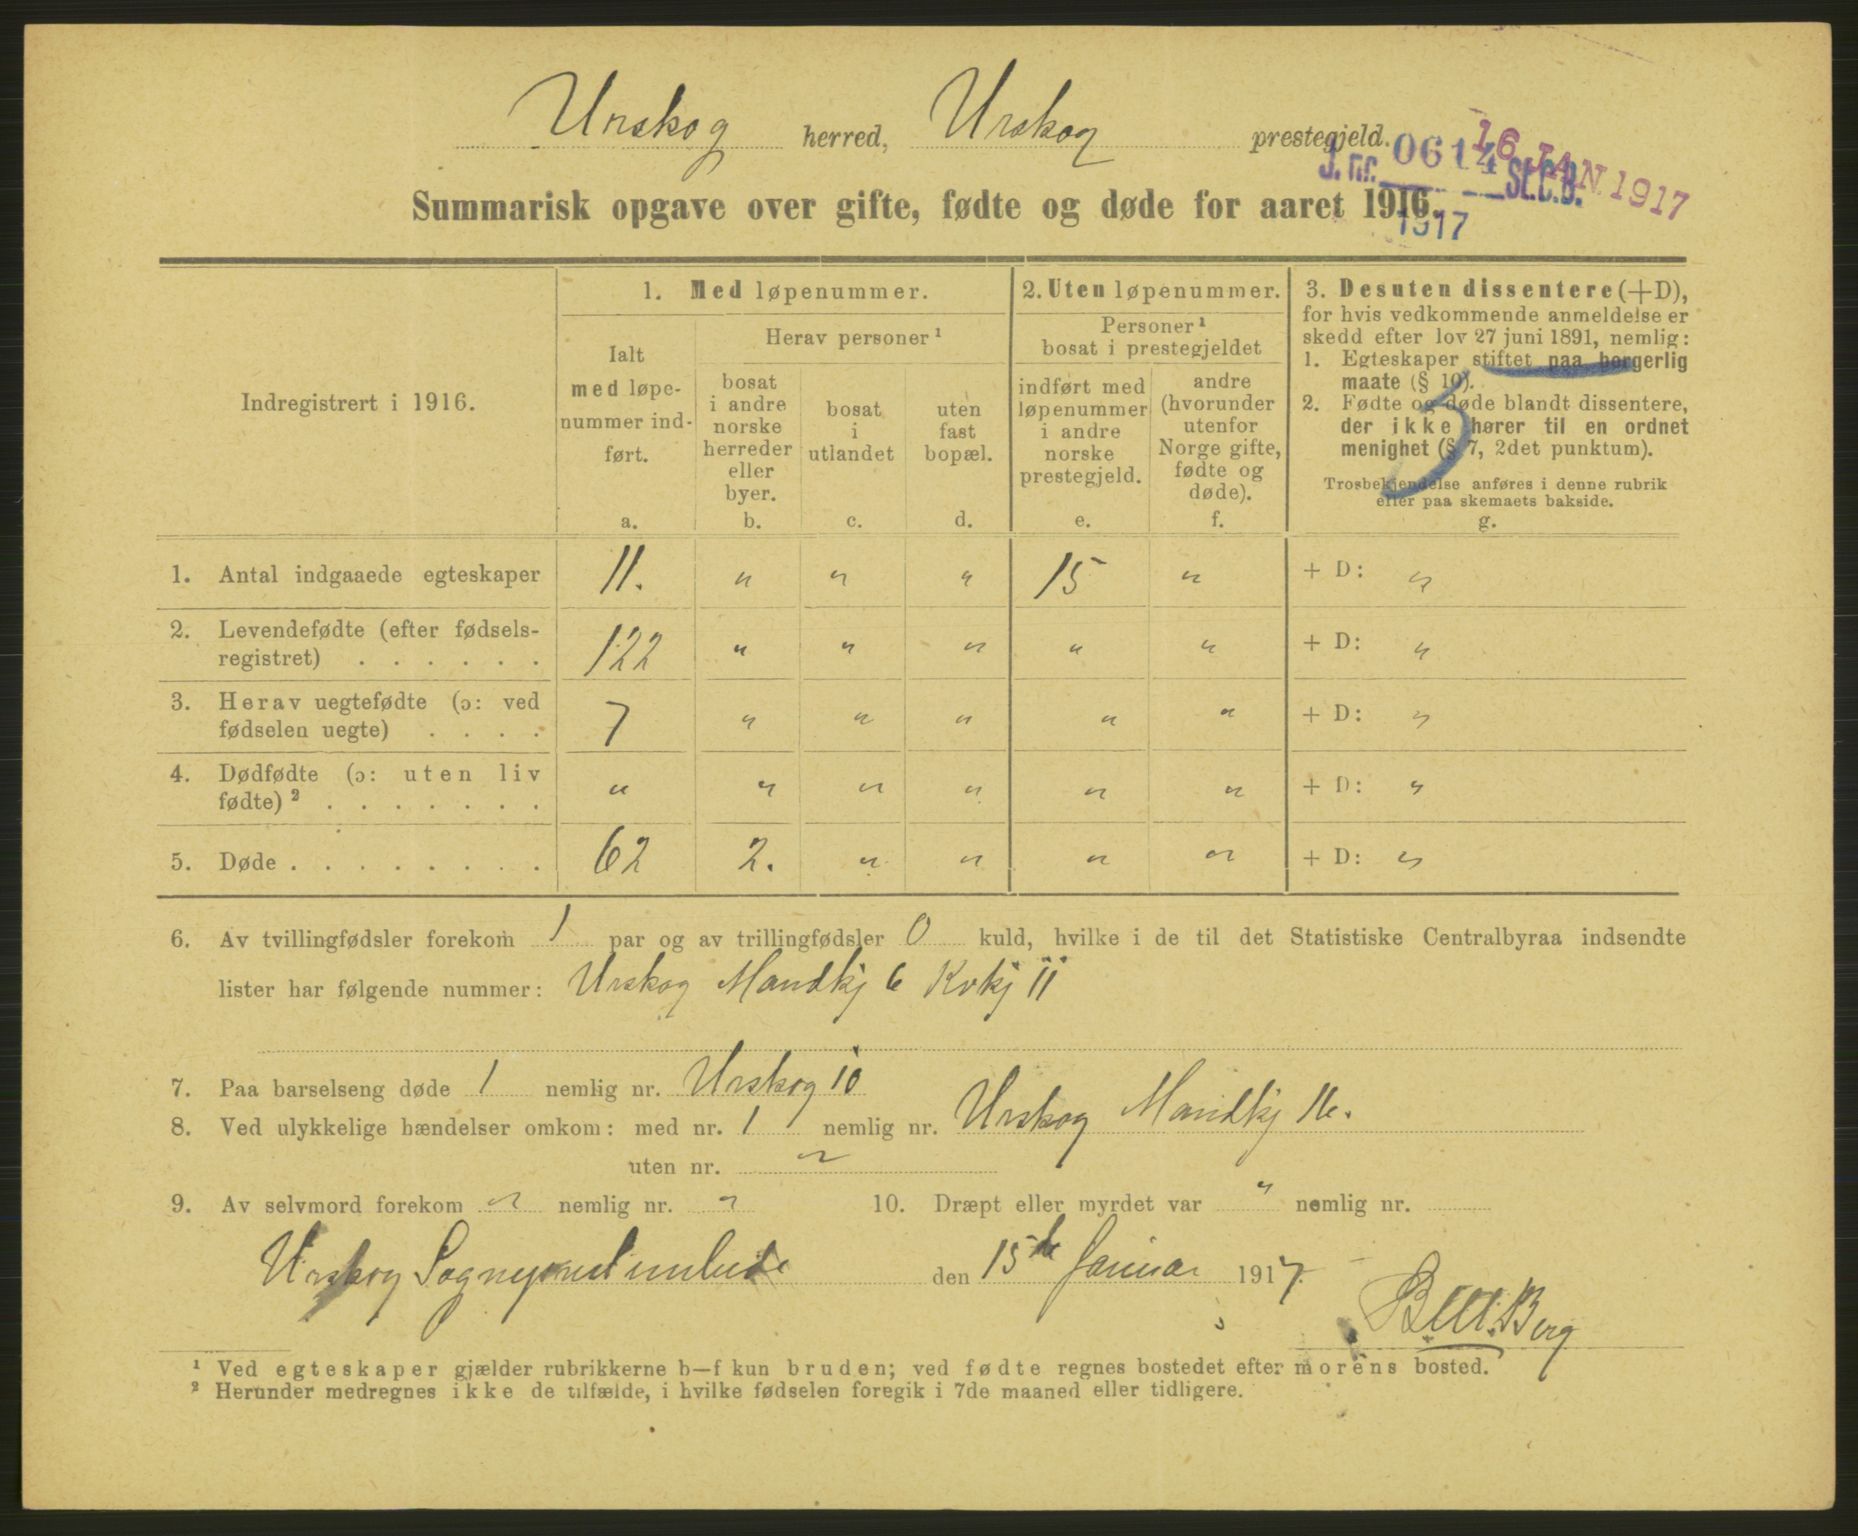 Urskog herred, Urskog prestegjeld.
J. nr. 0614 St.C.B.
1917
16 JAN. 1917
Summarisk opgave over gifte, fødte og døde for aaret 1916.
Indregistrert i 1916.
1. Med løpenummer.
Ialt
med løpe-
nummer ind-
ført.
a.
Herav personer ¹
bosat
i andre
norske
herreder
eller
byer.
b.
bosat
i
utlandet
c.
uten
fast
bopæl.
d.
2. Uten løpenummer.
Personer ¹
bosat i prestegjeldet
indført med
løpenummer
i andre
norske
prestegjeld.
e.
andre
(hvorunder
utenfor
Norge gifte,
fødte og
døde).
f.
3. Desuten dissentere (+D),
for hvis vedkommende anmeldelse er
skedd efter lov 27 juni 1891, nemlig:
1. Egteskaper stiftet paa borgerlig
maate (§ 10).
2. Fødte og døde blandt dissentere,
der ikke hører til en ordnet
menighet (§ 7, 2det punktum).
Trosbekjendelse anføres i denne rubrik
eller paa skemaets bakside.
g.
3
1. Antal indgaaede egteskaper 11. " " " 15 " + D: "
2. Levendefødte (efter fødsels-
registret) . . . . . . 122 " " " " " + D: "
3. Herav uegtefødte (ɔ: ved
fødselen uegte) . . . . 7 " " " " " + D: "
4. Dødfødte (ɔ: uten liv
fødte) ² . . . . . . . " " " " " " + D: "
5. Døde . . . . . . . . 62 2. " " " " + D: "
6. Av tvillingfødsler forekom 1 par og av trillingfødsler 0 kuld, hvilke i de til det Statistiske Centralbyraa indsendte
lister har følgende nummer: Urskog Mandkj 6 Kvkj 11
7. Paa barselseng døde 1 nemlig nr. Urskog 10
8. Ved ulykkelige hændelser omkom: med nr. 1 nemlig nr. Urskog Mandkj 16.
uten nr. "
9. Av selvmord forekom " nemlig nr. " 10. Dræpt eller myrdet var " nemlig nr.
Urskog Sogneprestembede den 15de Januar 1917.
Berg
¹ Ved egteskaper gjælder rubrikkerne b—f kun bruden; ved fødte regnes bostedet efter morens bosted.
² Herunder medregnes ikke de tilfælde, i hvilke fødselen foregik i 7de maaned eller tidligere.